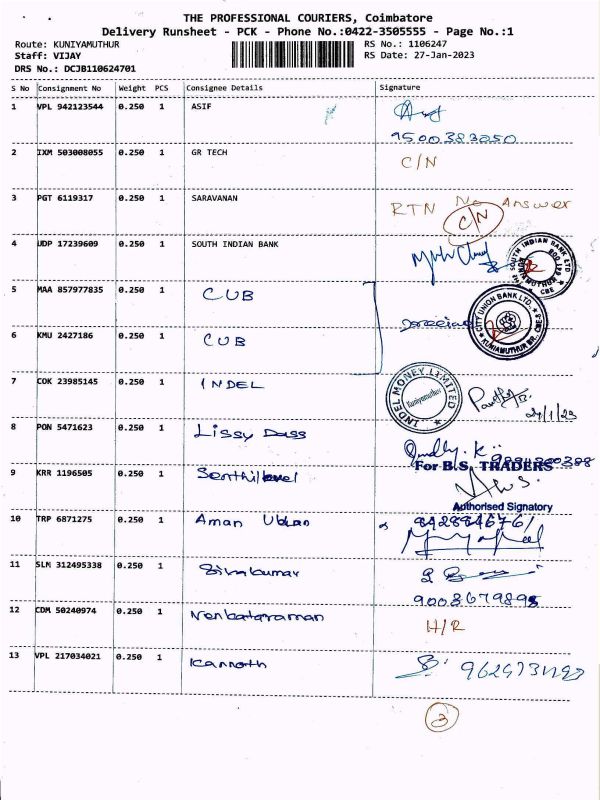 THE PROFESSIONAL COURIERS, Coimbatore
Delivery Runsheet - PCK - Phone No.:0422-3505555 - Page No.:1
Route: KUNIYAMUTHUR RS No.: 1106247
Staff: VIJAY RS Date: 27-Jan-2023
DRS No.: DCJB110624701
S No Consignment No Weight PCS Consignee Details Signature
1 VPL 942123544 0.250 1 ASIF
9500383250
2 IXM 503008055 0.250 1 GR TECH C/N
3 PGT 6119317 0.250 1 SARAVANAN RTN No Answer
C/N
4 UDP 17239609 0.250 1 SOUTH INDIAN BANK
SOUTH INDIAN BANK LTD
CBE
5 MAA 857977835 0.250 1 CUB
CITY UNION BANK LTD.
KUNIAMUTHUR BR.
6 KMU 2427186 0.250 1 CUB
7 COK 23985145 0.250 1 INDEL
INDEL MONEY LIMITED
Kuniyamuthur
27/1/23
8 PON 5471623 0.250 1 Lissy Dass
For B.S. TRADERS
9 KRR 1196505 0.250 1 Senthilvel
Authorised Signatory
10 TRP 6871275 0.250 1 Aman
842884676/
11 SLM 312495338 0.250 1 Sivakumar
9003679895
12 CDM 50240974 0.250 1 Venkataraman H/R
13 VPL 217034021 0.250 1 Kannath
3